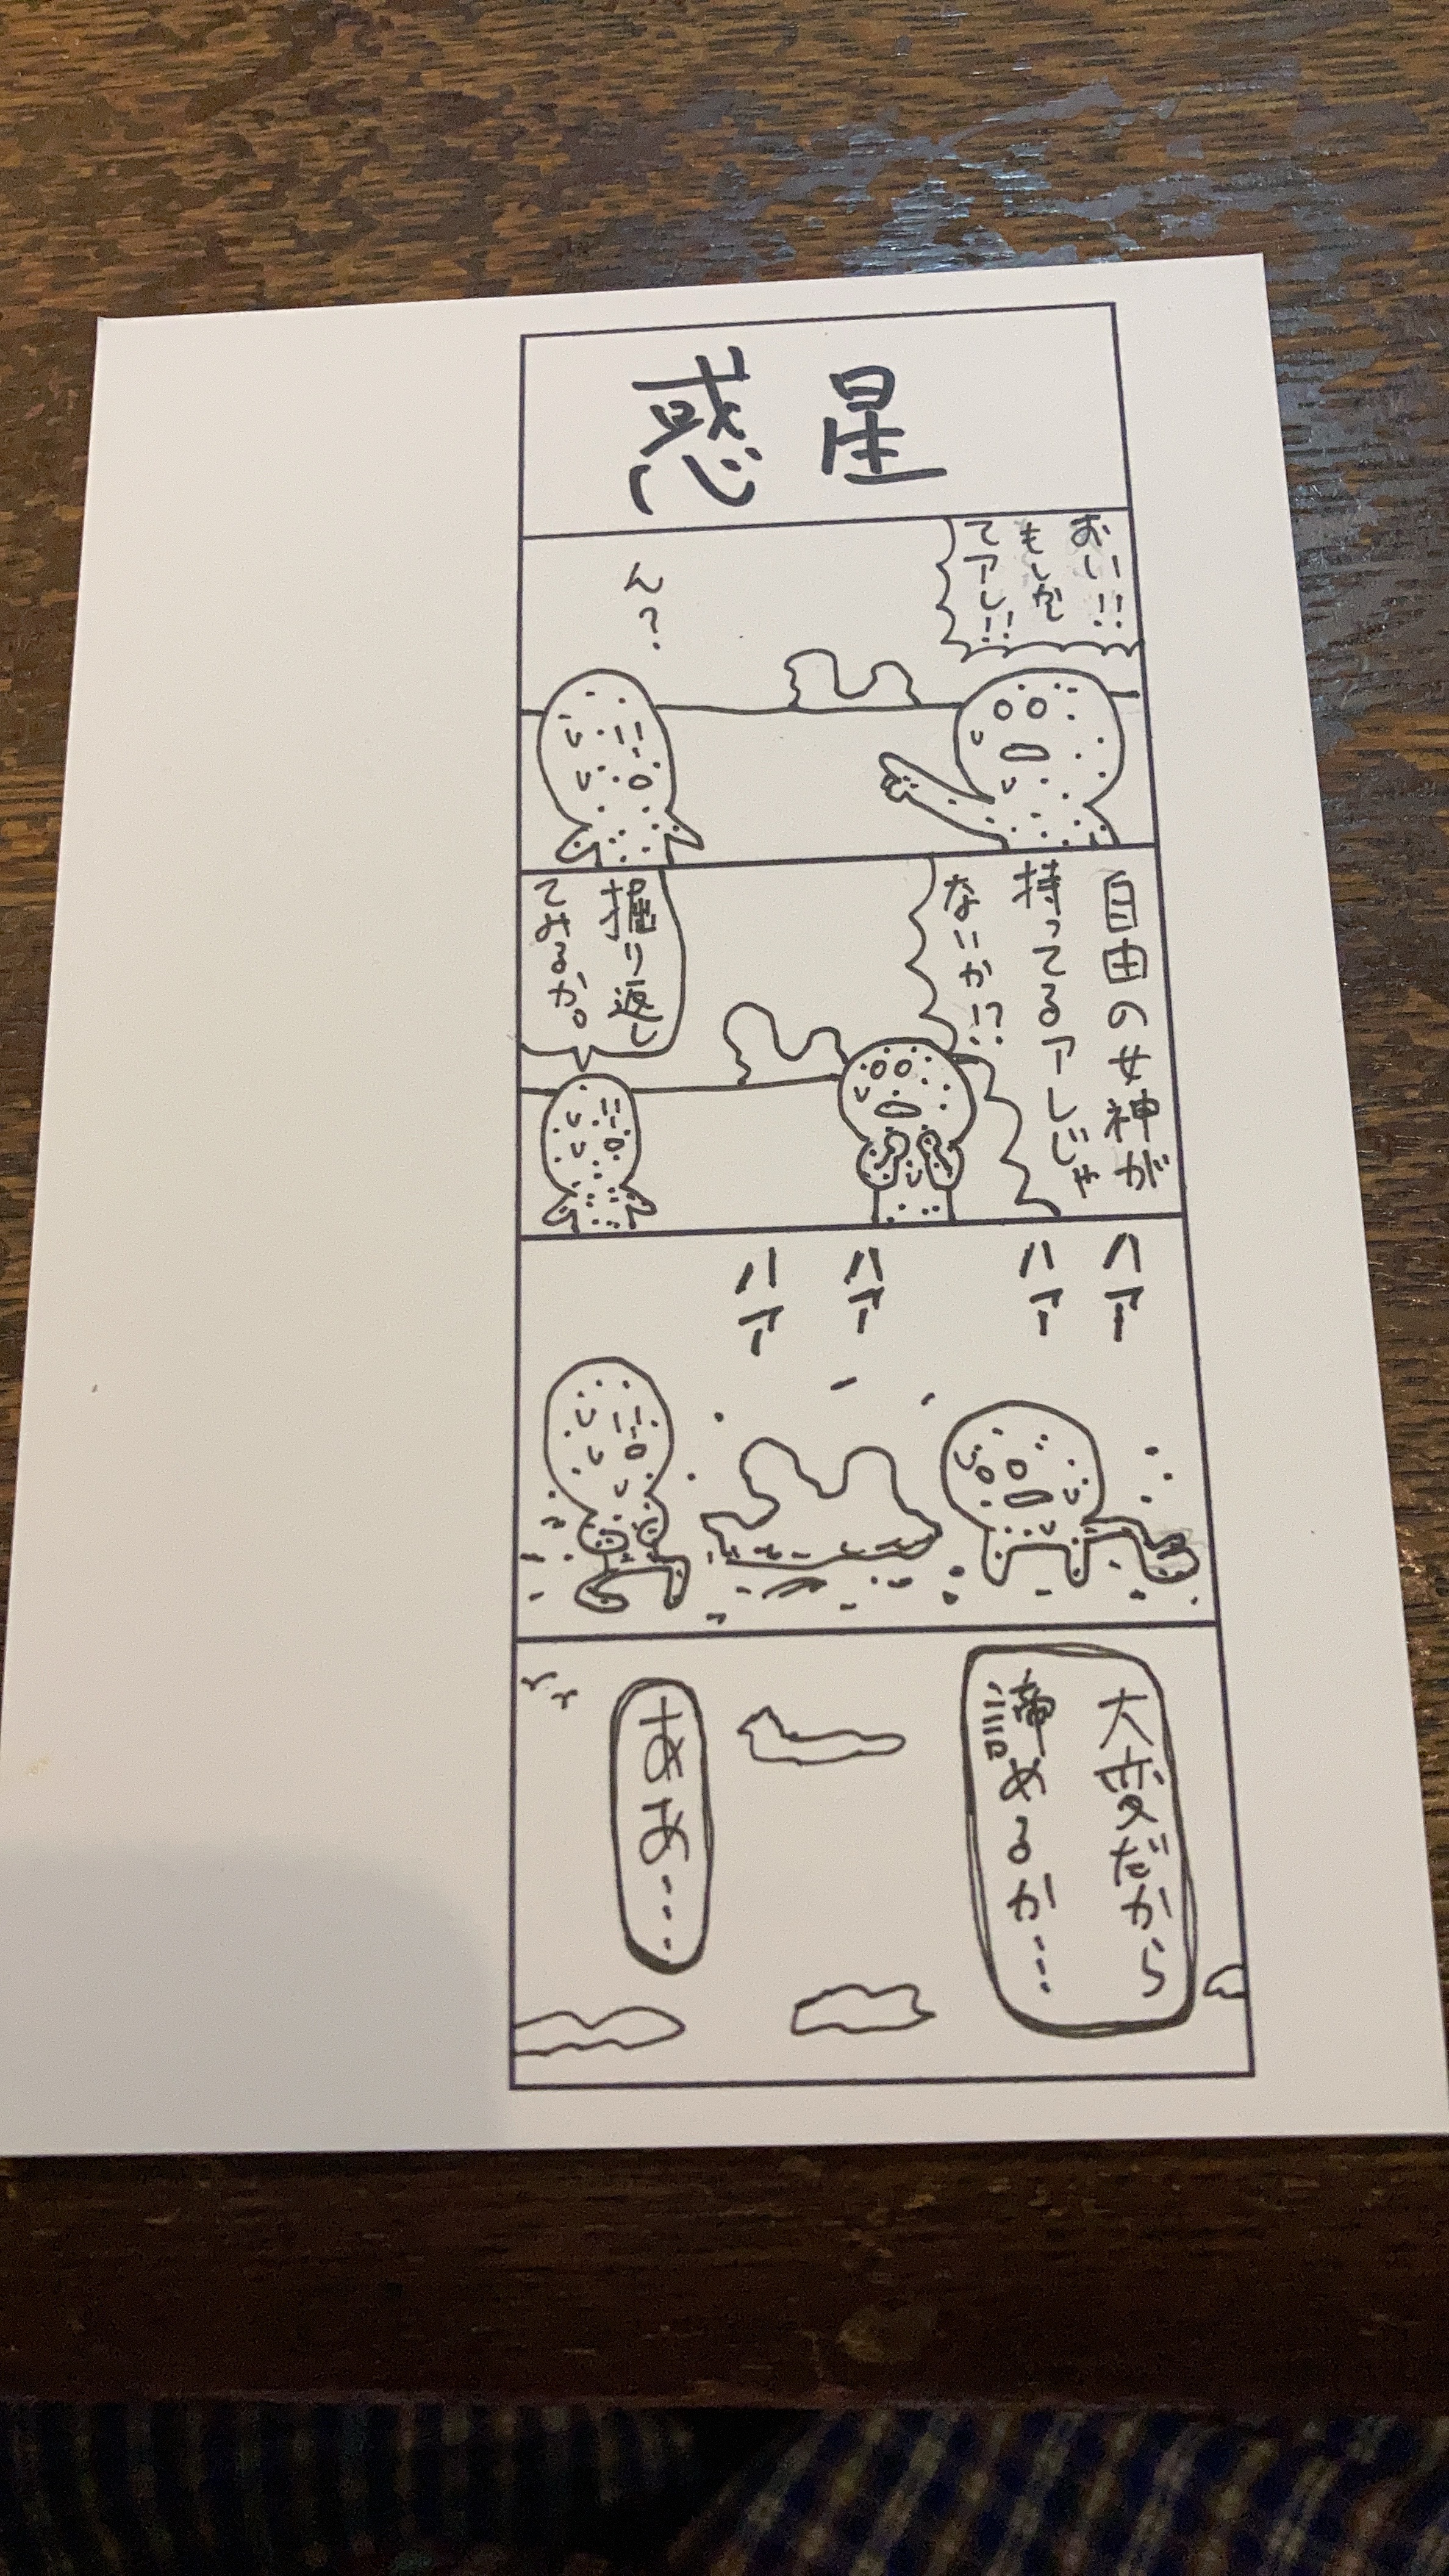 惑星
おい!!
もしか
てアレ!!
ん?
自由の女神が
持ってるアレじゃ
ないか!?
掘り返し
てみるか。
ハア
ハア
ハア
ハア
大変だから
諦めるか……
ああ……